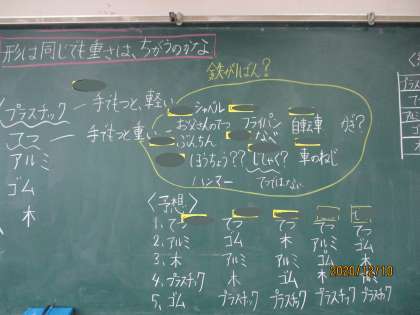 形は同じでも重さは、ちがうのかな
鉄がいちばん?
プラスチック ― 手でもつと、軽い
てつ ― 手でもつと重い
アルミ
ゴム
木
シャベル
お父さんのてつ フライパン 自転車
ぶんちん なべ
ほうちょう?? じしゃく? 車のねじ
ハンマー てつではない
〈予想〉
1、てつ てつ てつ てつ てつ
2、アルミ ゴム 木 アルミ ゴム
3、木 アルミ アルミ ゴム 木
4、プラスチック 木 ゴム 木
5、ゴム プラスチック プラスチック プラスチック プラスチック
2020/12/10